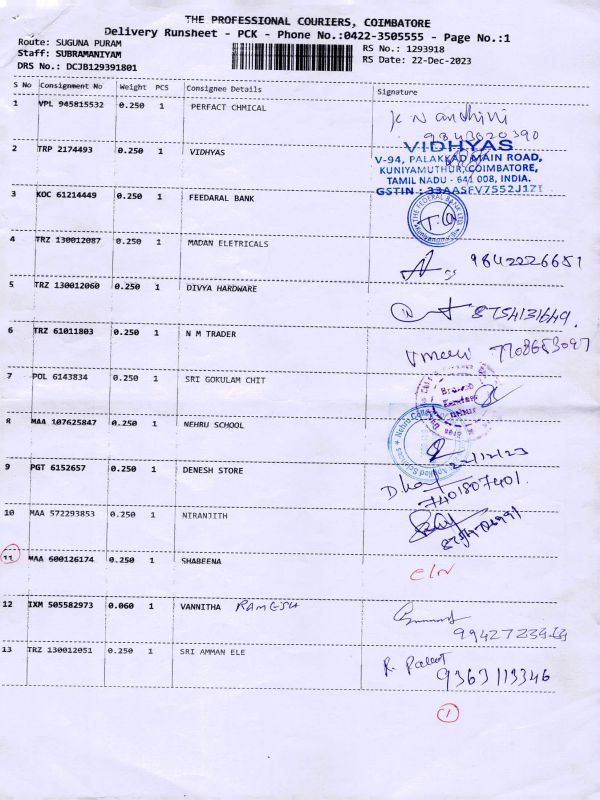 THE PROFESSIONAL COURIERS, COIMBATORE
Delivery Runsheet - PCK - Phone No.:0422-3505555 - Page No.:1
Route: SUGUNA PURAM
Staff: SUBRAMANIYAM
DRS No.: DCJB129391801
RS No.: 1293918
RS Date: 22-Dec-2023
S No Consignment No Weight PCS Consignee Details Signature
1 VPL 945815532 0.250 1 PERFACT CHMICAL
K Nandhini
9843020390
2 TRP 2174493 0.250 1 VIDHYAS
VIDHYAS
V-94, PALAKKAD MAIN ROAD,
KUNIYAMUTHUR, COIMBATORE,
TAMIL NADU - 641 008, INDIA.
GSTIN : 33AASFV7552J1ZI
3 KOC 61214449 0.250 1 FEEDARAL BANK
THE FEDERAL BANK LTD
4 TRZ 130012087 0.250 1 MADAN ELETRICALS
9842226651
5 TRZ 130012060 0.250 1 DIVYA HARDWARE
8754131649.
6 TRZ 61011803 0.250 1 N M TRADER
7708653097
7 POL 6143834 0.250 1 SRI GOKULAM CHIT
8 MAA 107625847 0.250 1 NEHRU SCHOOL
22/12/23
9 PGT 6152657 0.250 1 DENESH STORE
7401807401.
10 MAA 572293853 0.250 1 NIRANJITH
11 MAA 600126174 0.250 1 SHABEENA
12 IXM 505582973 0.060 1 VANNITHA RAMESH
13 TRZ 130012051 0.250 1 SRI AMMAN ELE
9363113346
1